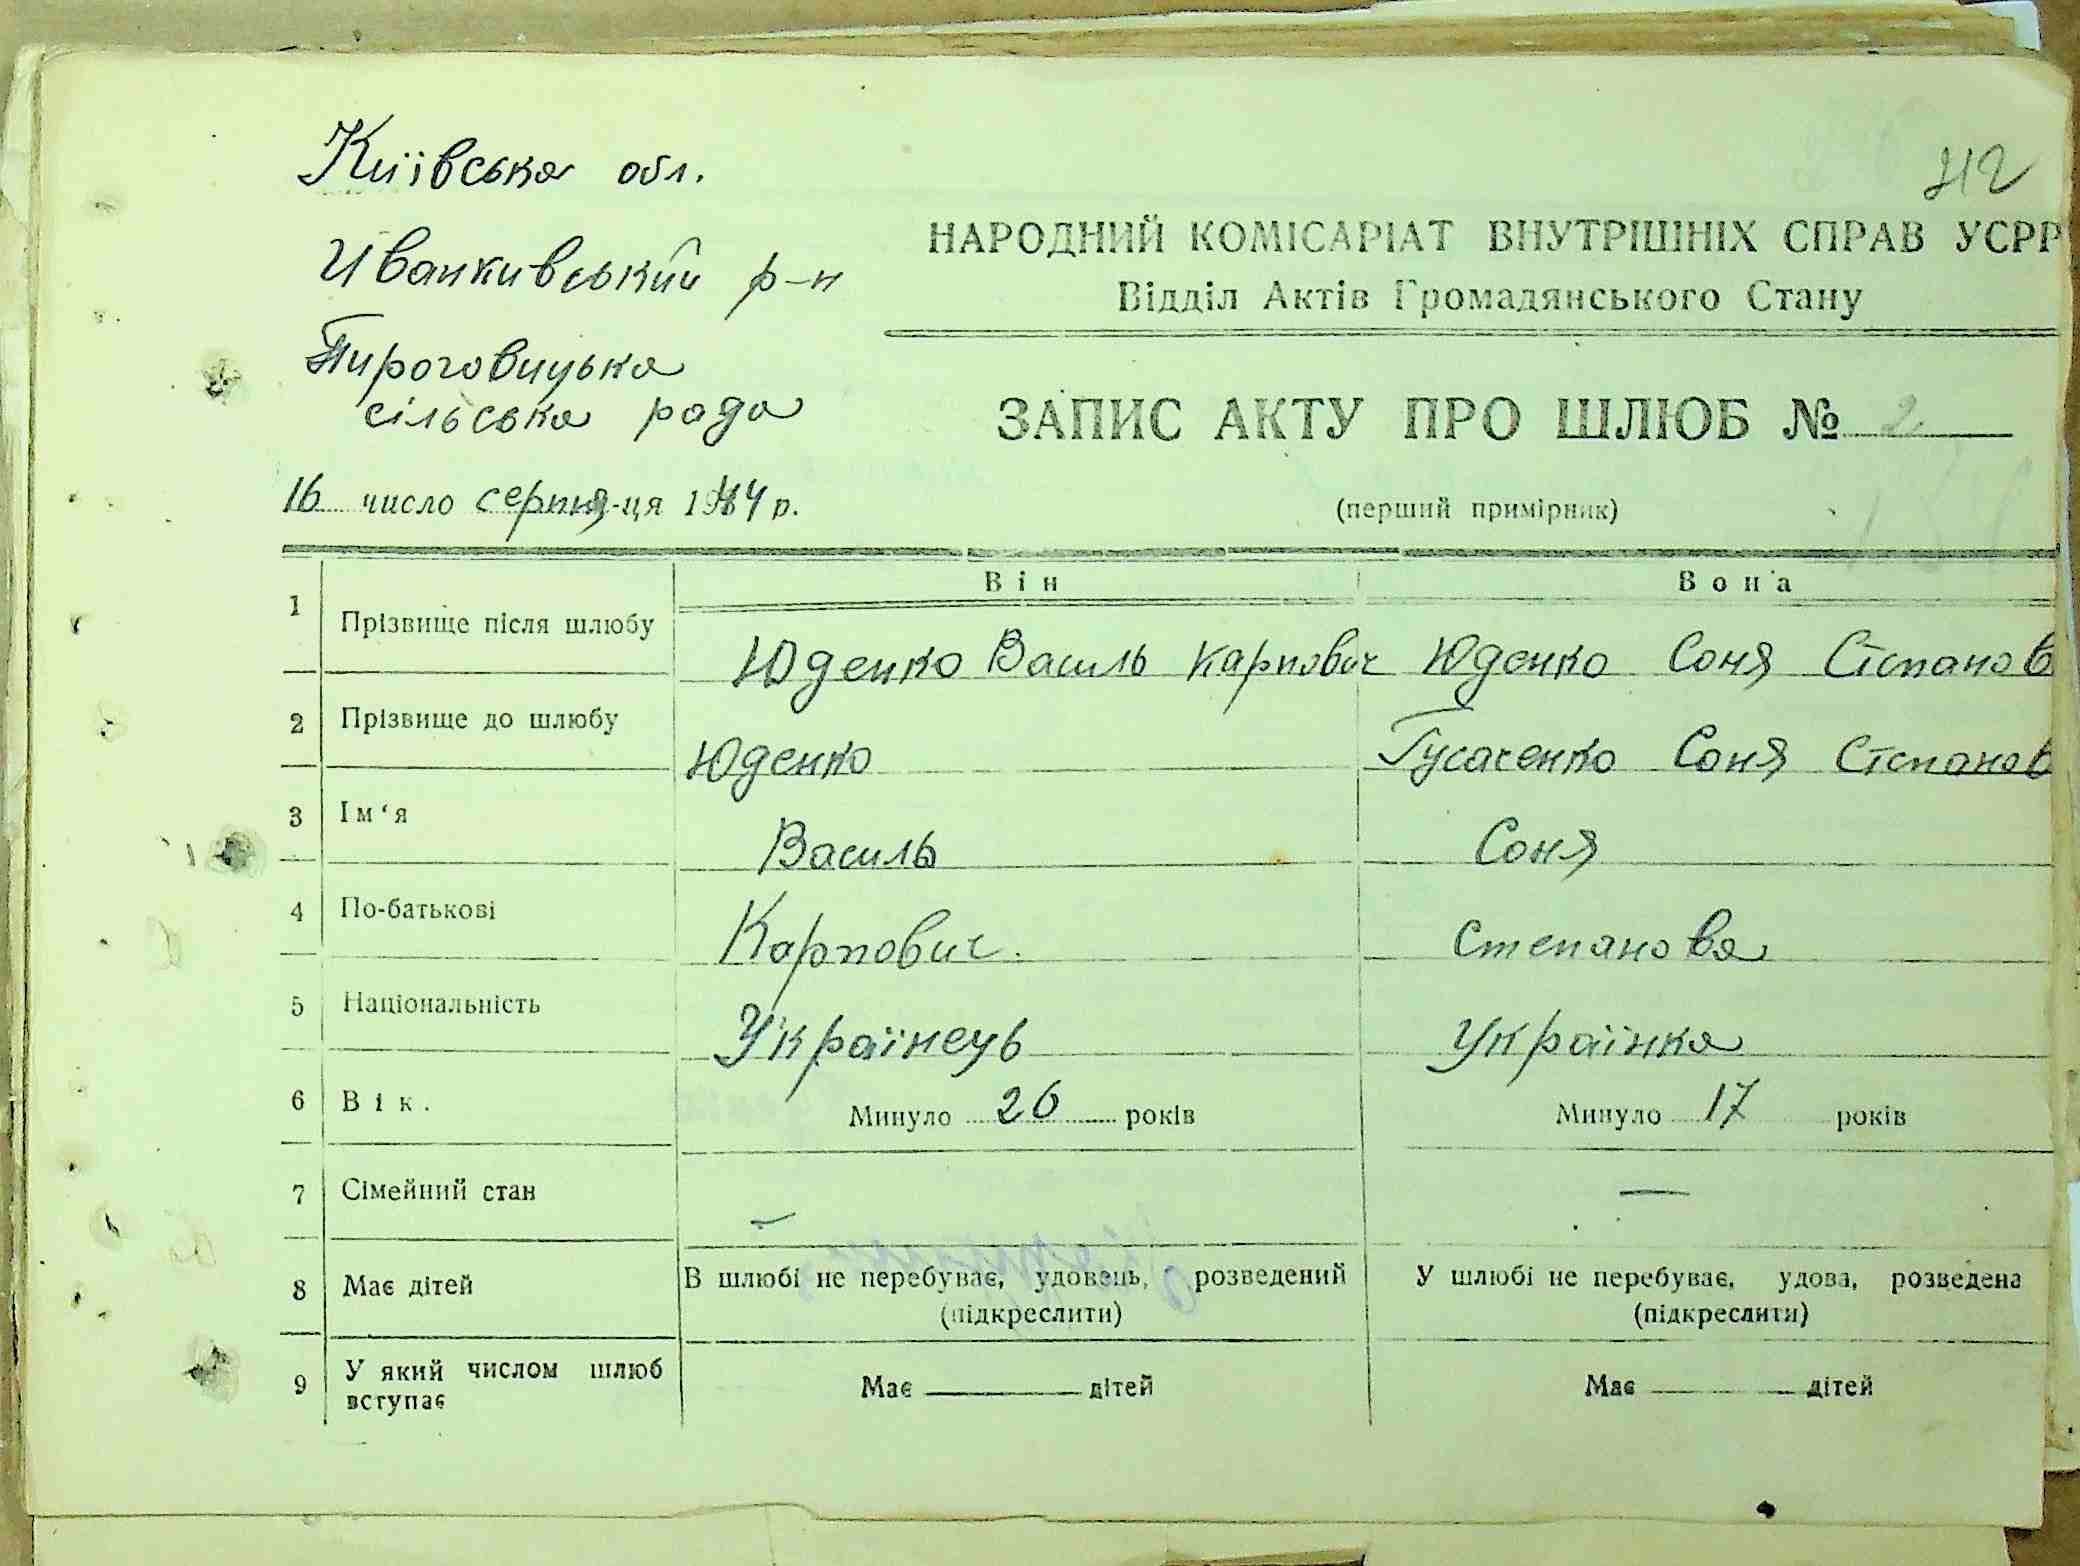 Київська обл.
412
Иванкивський р-н
НАРОДНИЙ КОМІСАРІАТ ВНУТРІШНІХ СПРАВ УСРР
Відділ Актів Громадянського Стану
Пироговицька
сільська рада
ЗАПИС АКТУ ПРО ШЛЮБ № 2
16 число серпня-ця 1944 р.
(перший примірник)
Він Вона
1 Прізвище після шлюбу Юденко Василь Карпович Юденко Соня Степанов
2 Прізвище до шлюбу Юденко Гусаченко Соня Степанов
3 Ім'я Василь Соня
4 По-батькові Карпович. Степанова
5 Національність Українець Українка
6 Вік. Минуло 26 років Минуло 17 років
7 Сімейний стан — —
8 Має дітей В шлюбі не перебуває, удовець, розведений У шлюбі не перебуває, удова, розведена
(підкреслити) (підкреслити)
9 У який числом шлюб вступає Має дітей Має дітей